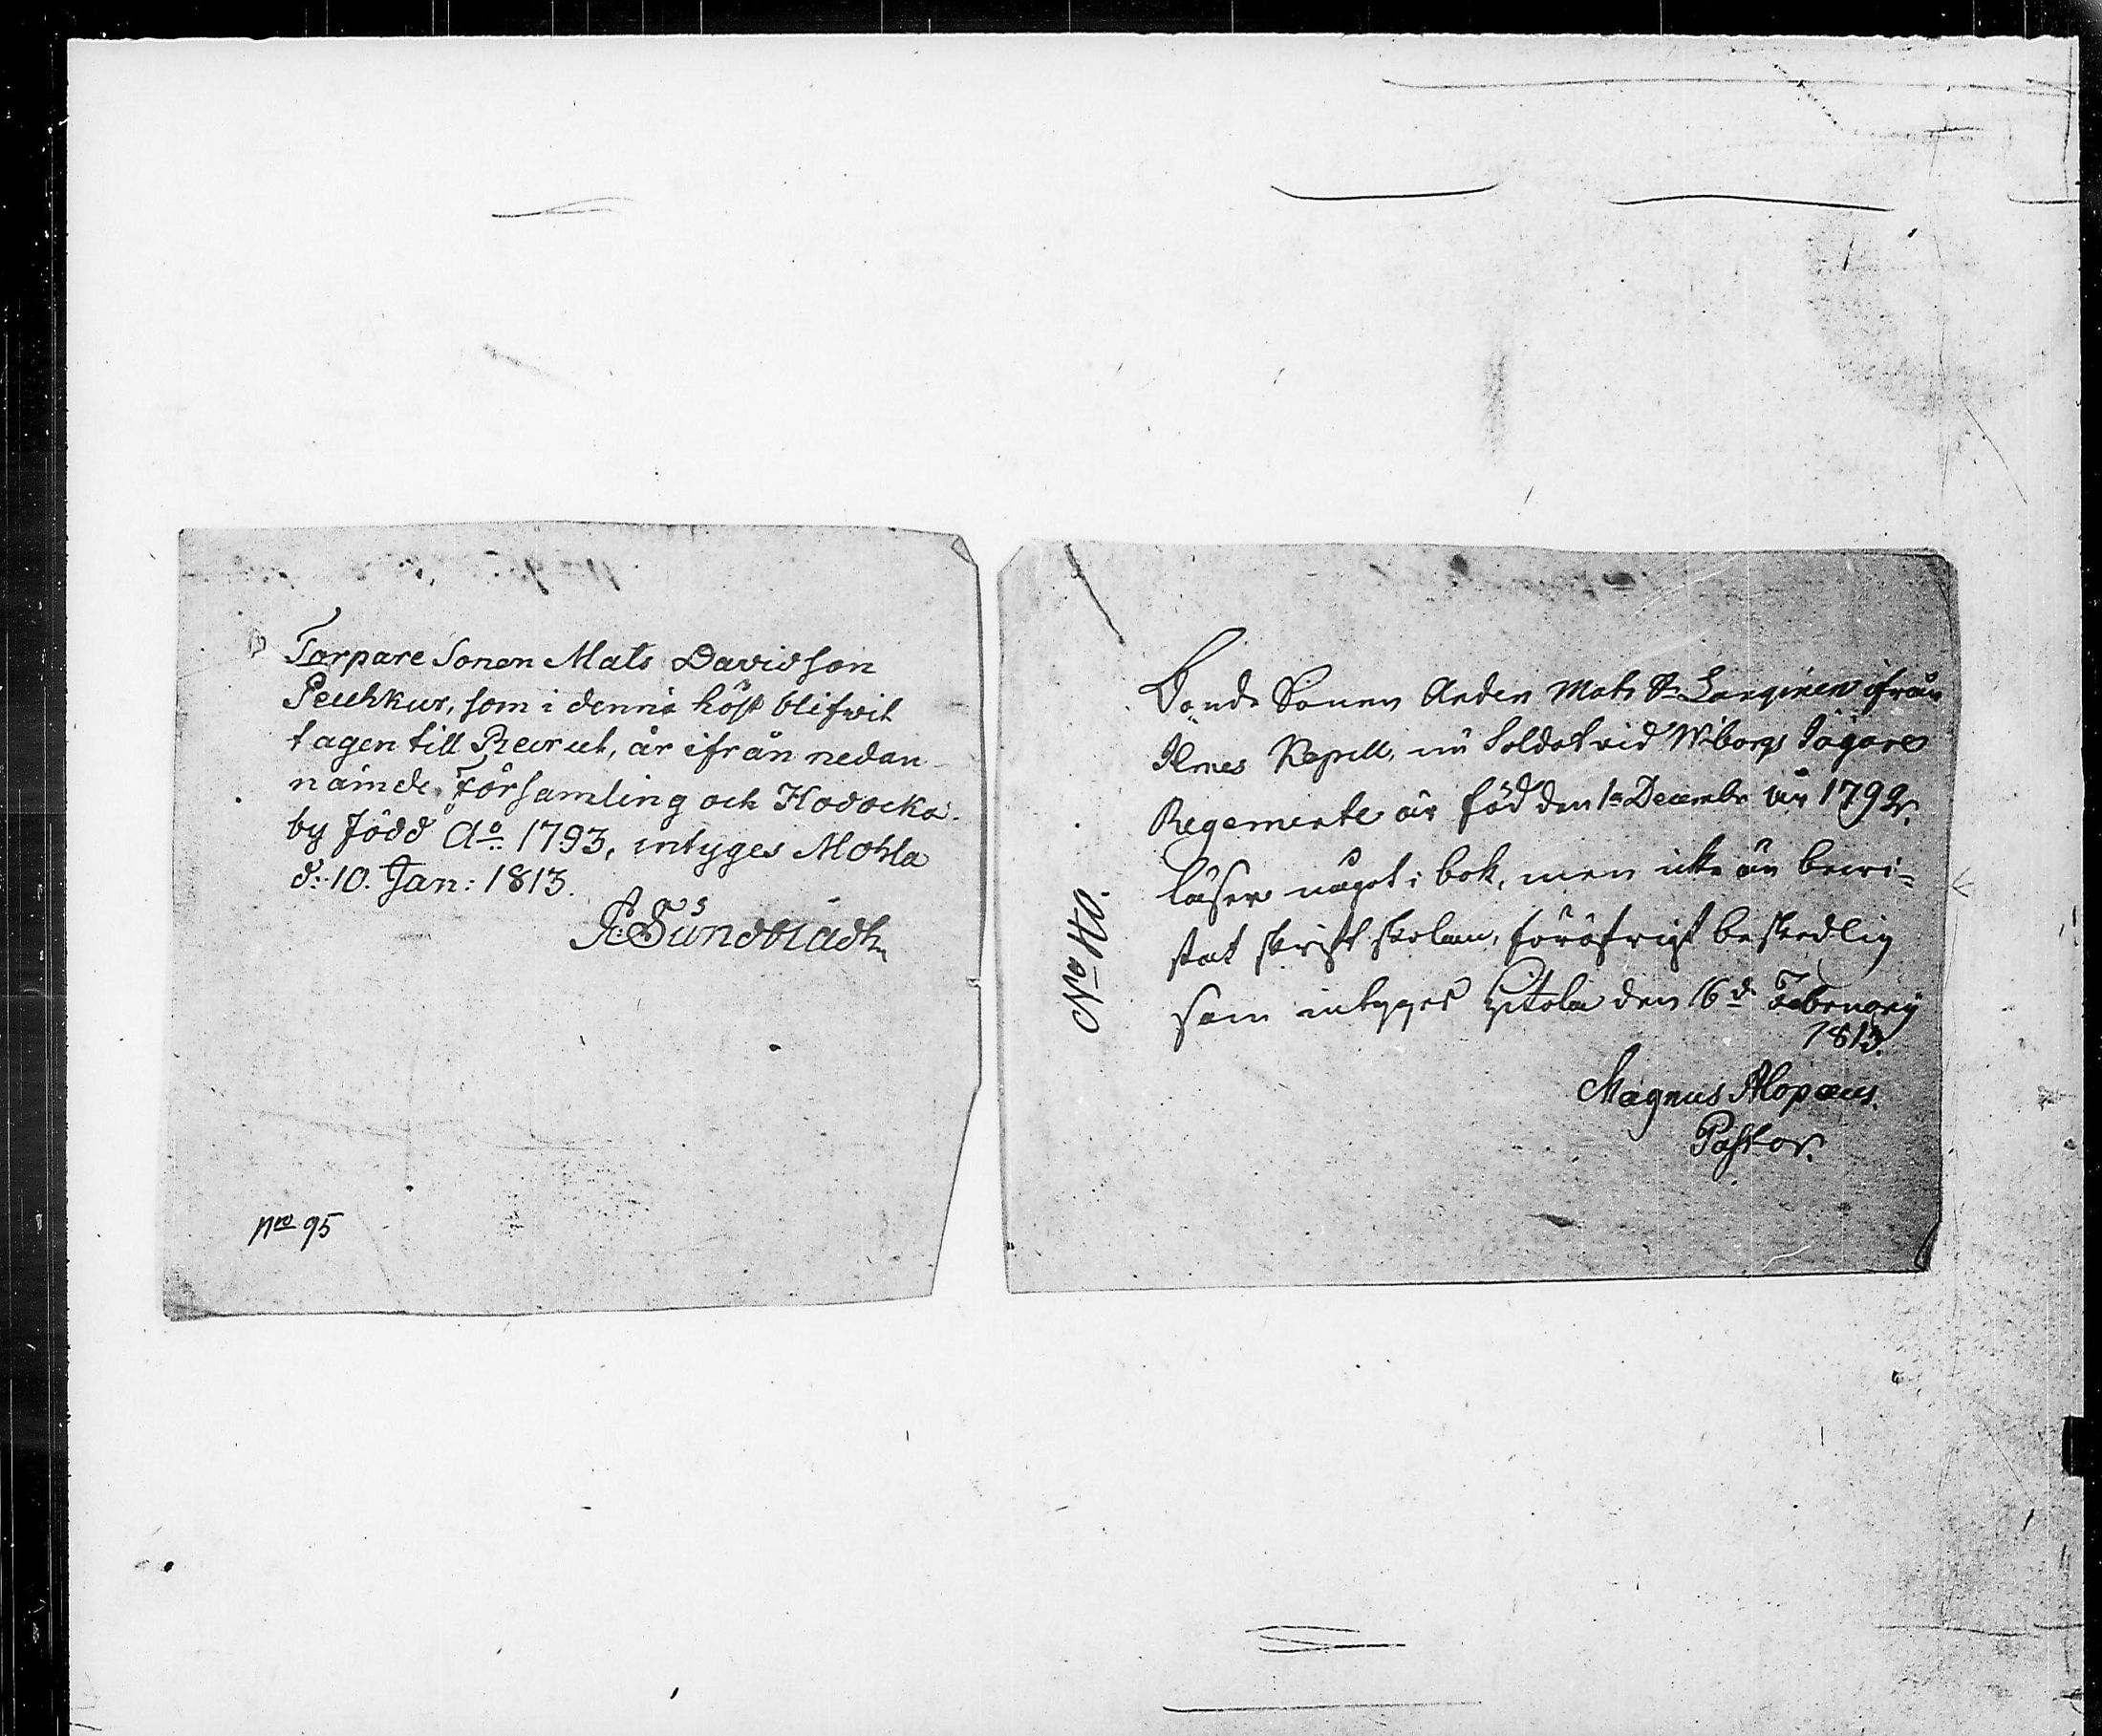 Torpare Sonen Mats Davidson
Peuhkur, som i denna höst blifwit
tagen till Recrut, är ifrån nedan-
nämde Församling och Kodocka
by född Ao. 1793, intyges Mohla
d: 10. Jan: 1813.
A: Sundbladh
Nro 95
No 40.
Bonde Sonen Anders Mats Sn Langinen ifrån
Ilmes Kapell, nu Soldat vid Wiborgs Jägare
Regemente är född den 1a Decembr år 1792.
läser något i bok, men icke än bewi-
stat skrift skolan, föröfrigt beskedlig
som intyges Hitola den 16de February
1813.
Magnus Alopæus.
Pastor.